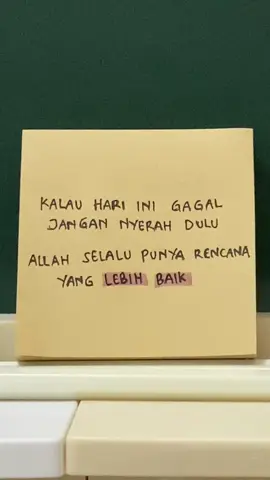 KALAU HARI INI GAGAL
JANGAN NYERAH DULU
ALLAH SELALU PUNYA RENCANA
YANG LEBIH BAIK